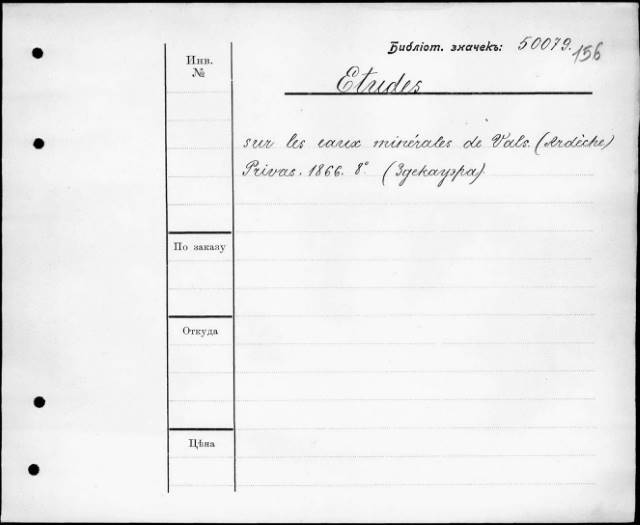 Библіот. значекъ: 50079. 156
Инв. №
Etudes
sur les eaux minérales de Vals. (Ardèche)
Privas. 1866. 8° (Здекауэра)
По заказу
Откуда
Цѣна